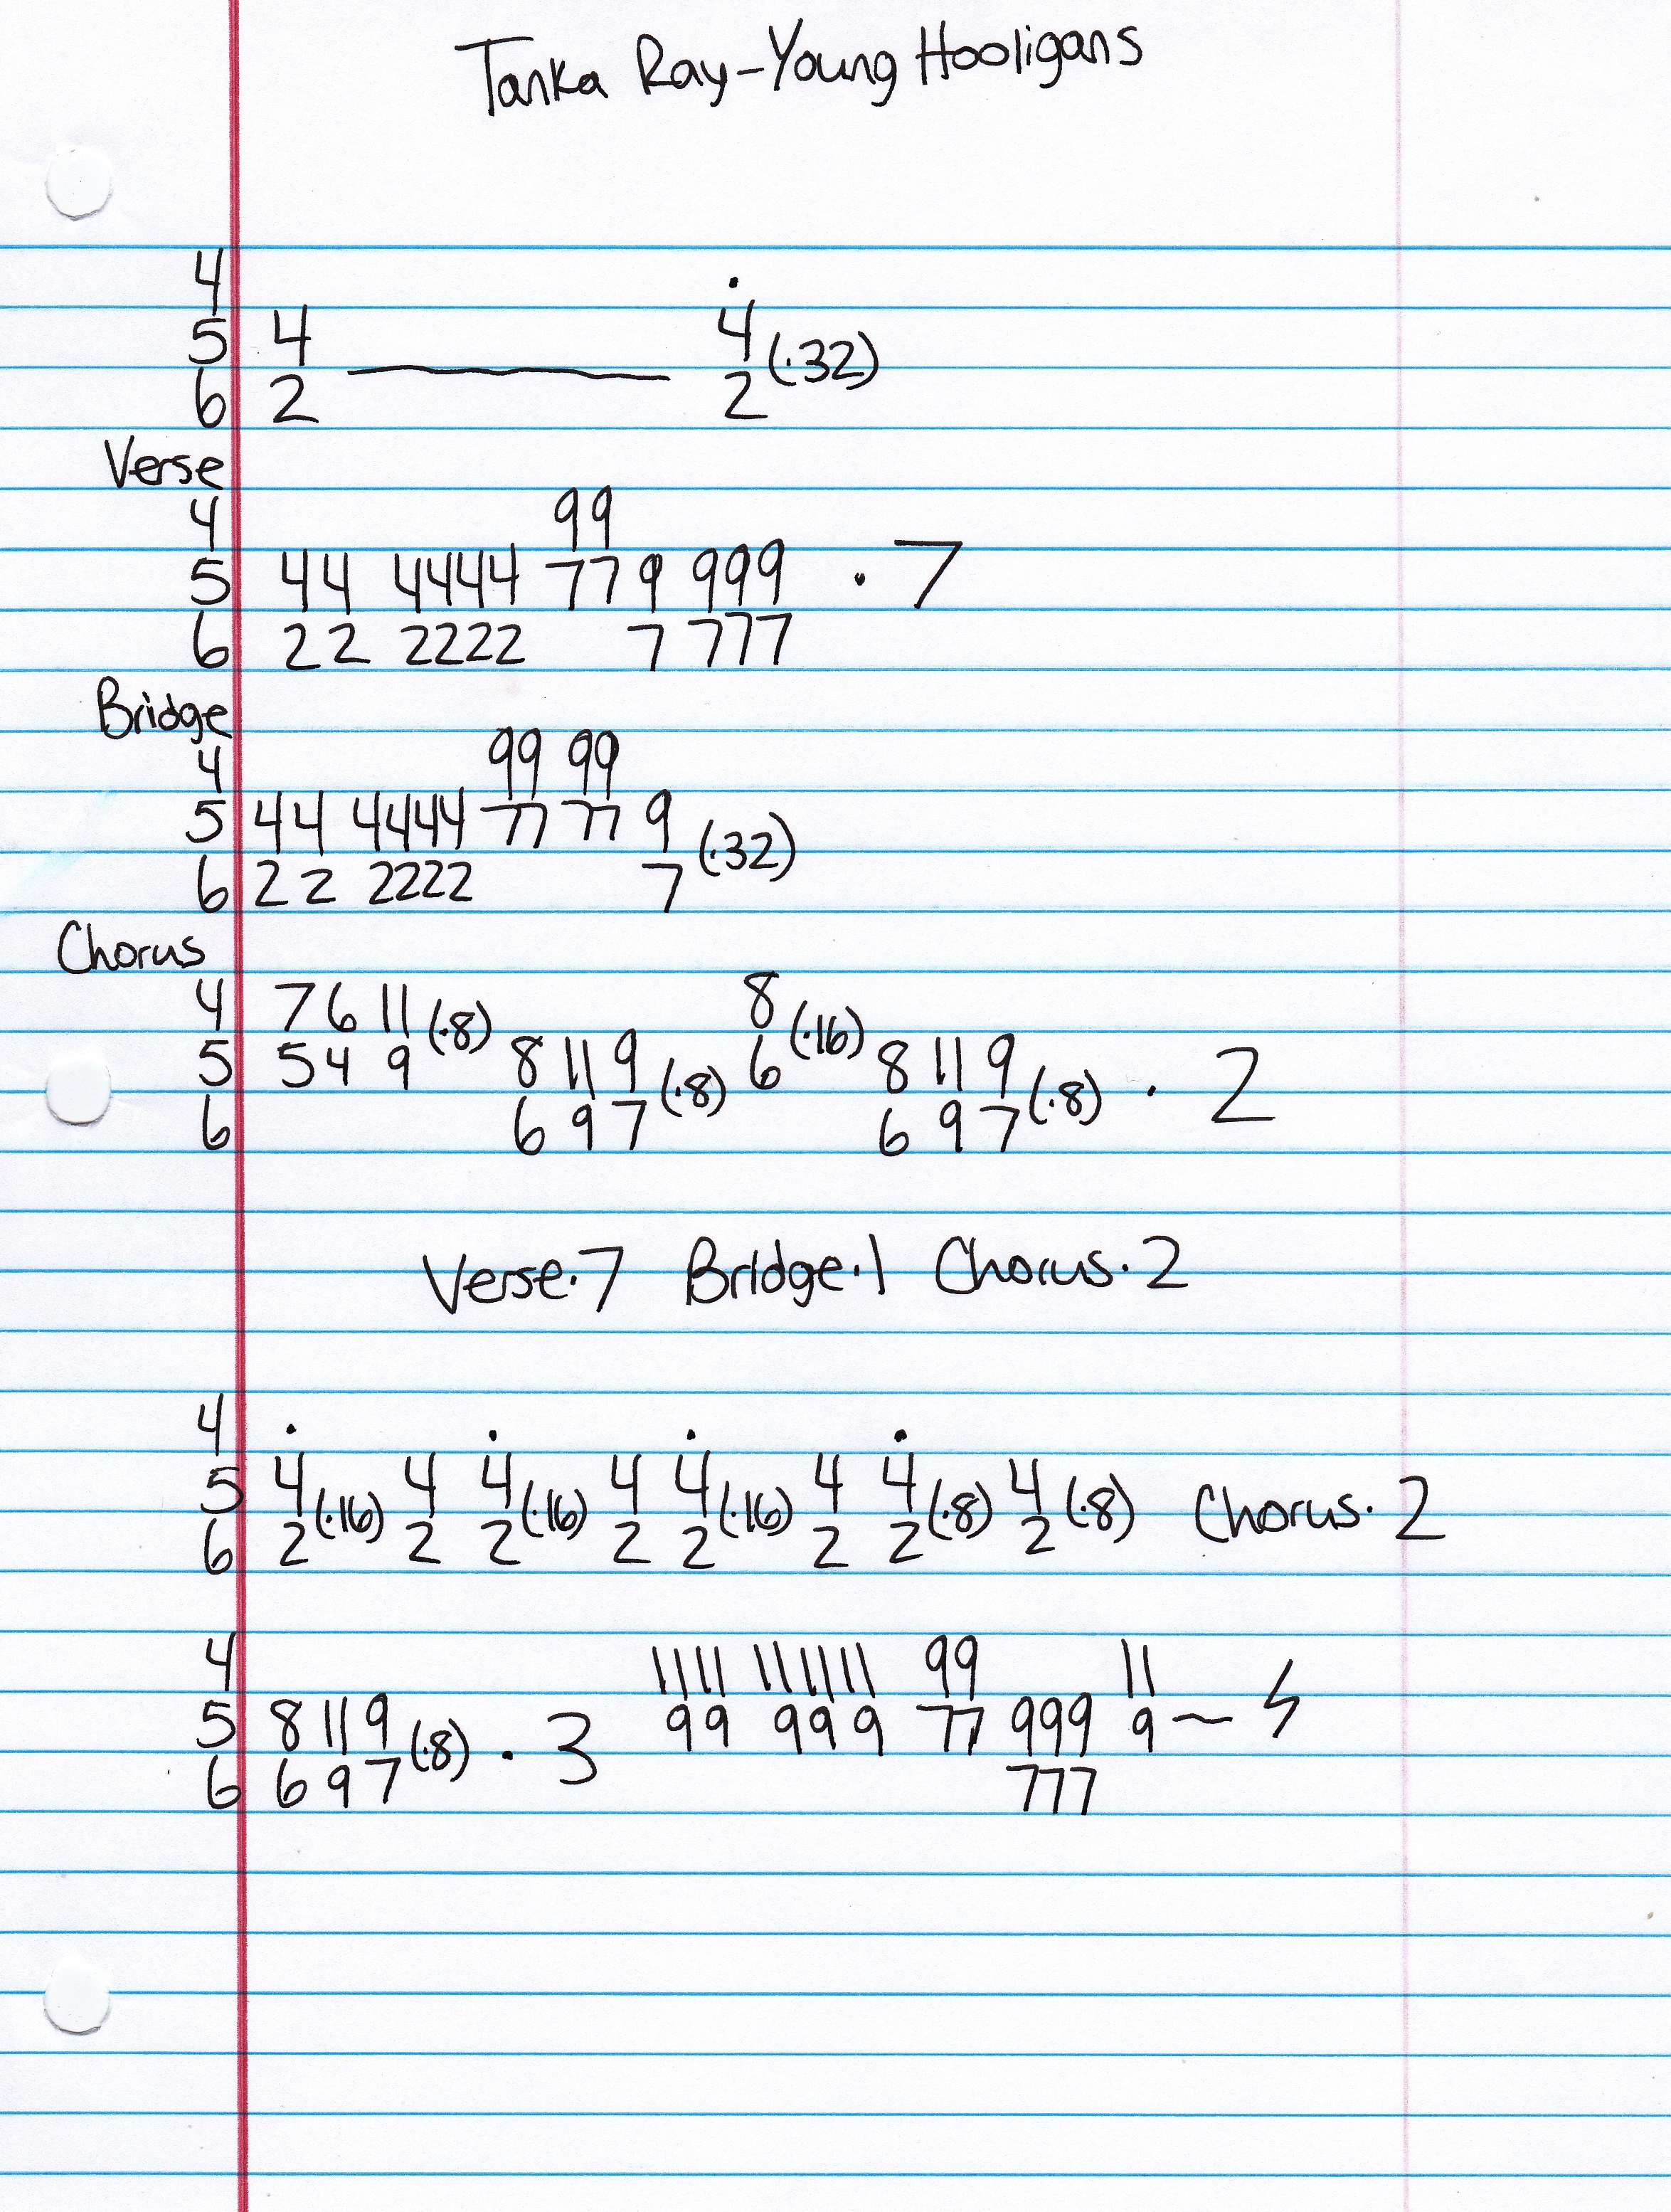 Tanka Ray-Young Hooligans
4
5 4 ______ 4̇ (·32)
6 2 2
Verse
4 99
5 44 4444 77 9 999 · 7
6 22 2222 7 777
Bridge
4 99 99
5 44 4444 77 77 9 (·32)
6 22 2222 7
Chorus
4 7 6 11 (·8) 8 (·16)
5 5 4 9 8 11 9 (·8) 6 8 11 9 (·8) · 2
6 6 9 7 6 9 7
Verse·7 Bridge·1 Chorus·2
4
5 4̇ (·16) 4 4̇ (·16) 4 4̇ (·16) 4 4̇ (·8) 4 (·8) Chorus·2
6 2 2 2 2 2 2 2 2
4 1111 111111 99 11
5 8 11 9 (·8) · 3 99 999 77 999 9 ~
6 6 9 7 777